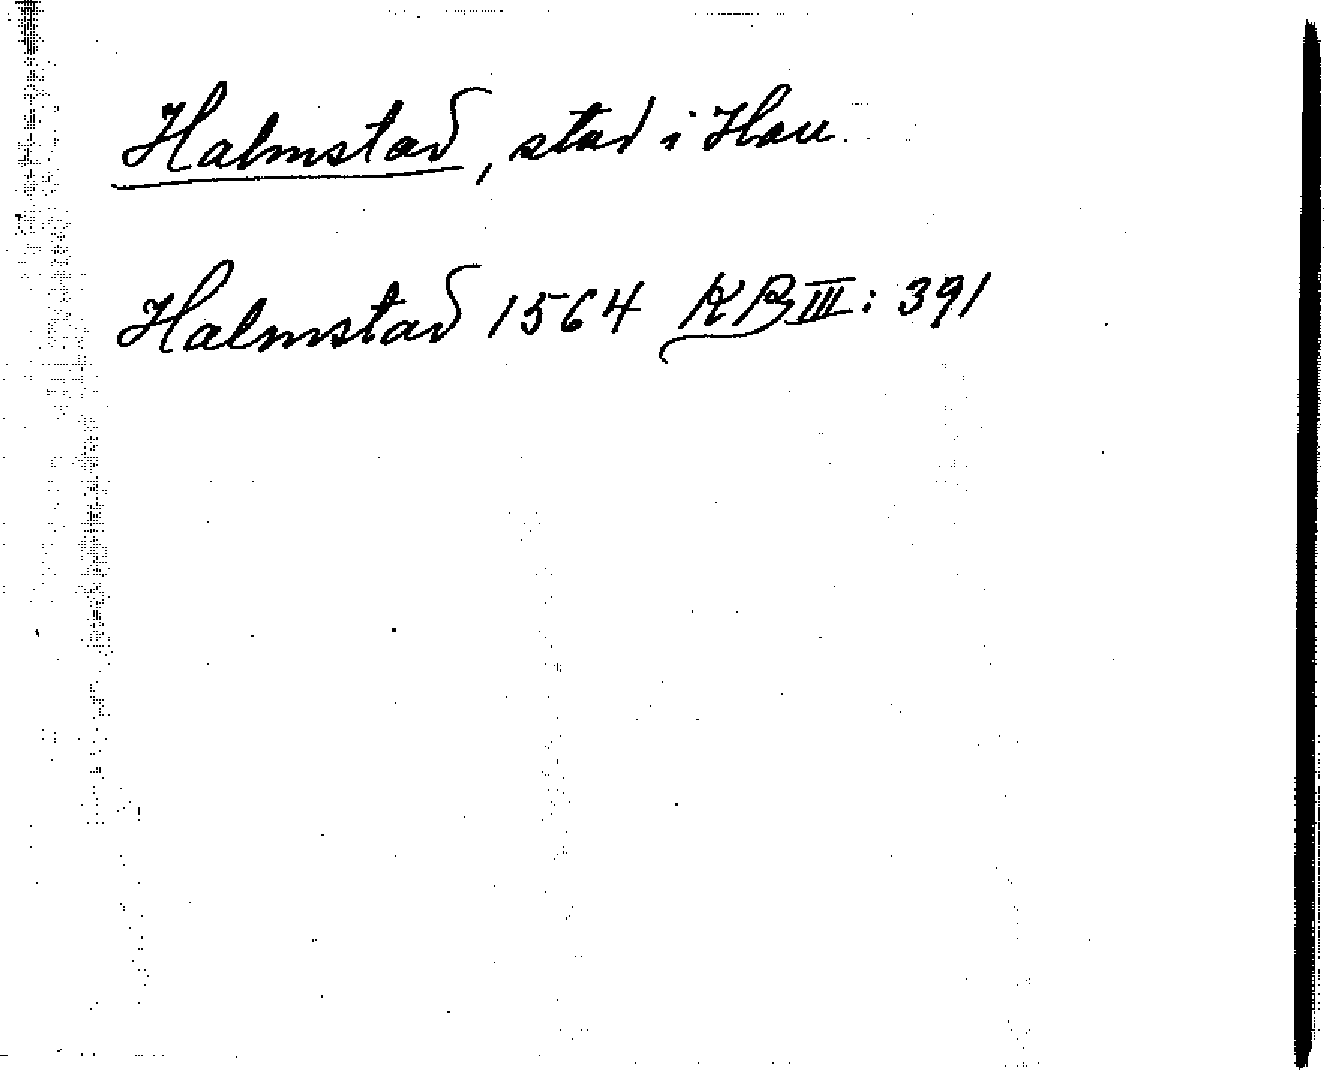 Halmstad, stad i Hall.
Halmstad 1564 KB III: 391